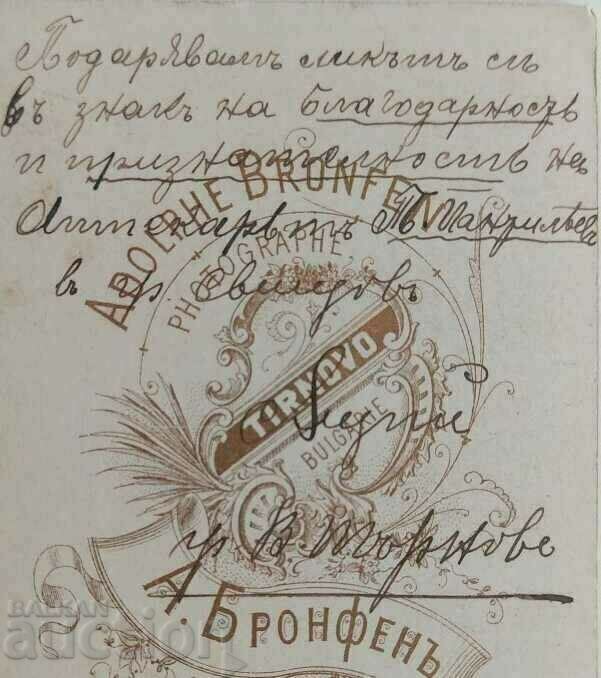 Подарявамъ ликътъ си
въ знакъ на благодарность
и признателность на
Аптекарьтъ
въ гр.
ADOLPHE BRONFEN
PHOTOGRAPHE
TIRNOVO
BULGARIE
гр. В. Търново
А. БРОНФЕНЪ
BALKAN
auction